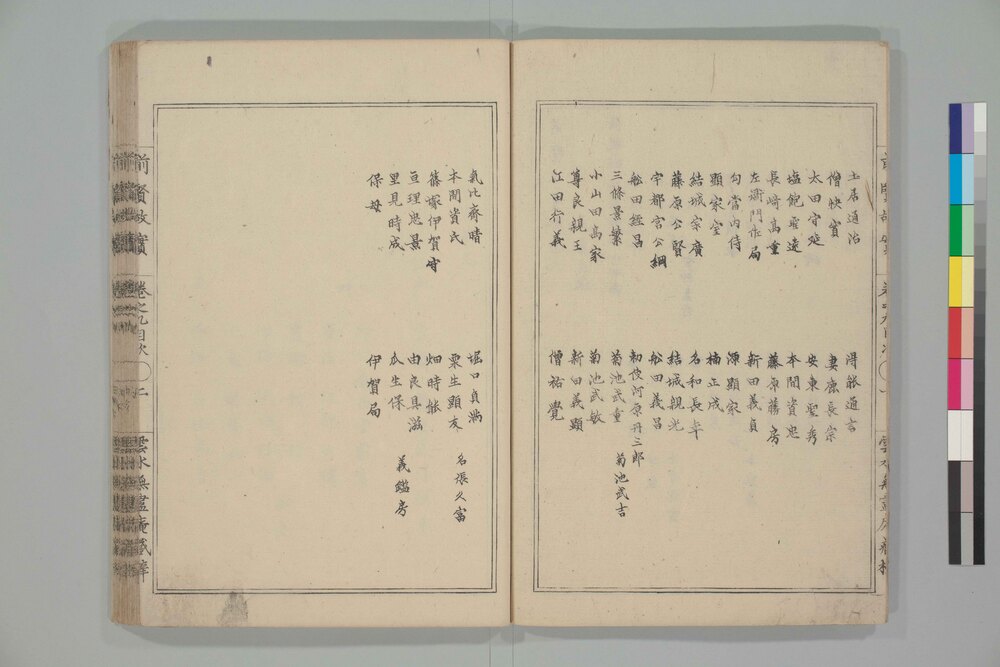 土居通治　得能通言
僧快實　妻鹿長宗
太田守延　安東聖秀
塩飽聖遠　本間資忠
長崎高重　藤原藤房
左衛門佐局　新田義貞
勾當内侍　源顯家
顯家室　楠正成
結城宗廣　名和長年
藤原公賢　結城親光
宇都宮公綱　舩田義昌
舩田經昌　勅使河原丹三郎
三條景繁　菊池武重　菊池武吉
小山田高家　菊池武敏
尊良親王　新田義顯
江田行義　僧祐覺
氣比齊晴　堀口貞満
本間資氏　栗生顯友　名張久富
篠塚伊賀守　畑時能
亘理忠景　由良具滋
里見時成　瓜生保　義鑑房
保母　伊賀局
前賢故實　卷之九目次　二　雲水無盡庵藏梓